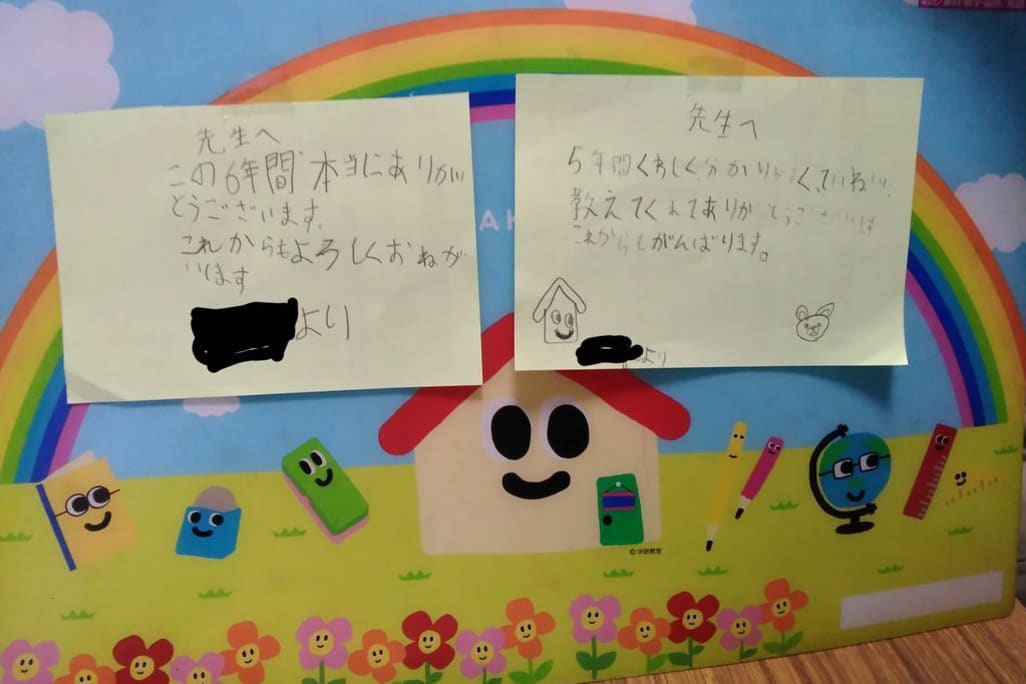 先生へ
この6年間本当にありがい
とうございます。
これからもよろしくおねがい
います
より
先生へ
5年間くわしく、分かりやすく、ていねいに
教えてくれてありがとうございます
これからもがんばります。
より
©学研教室